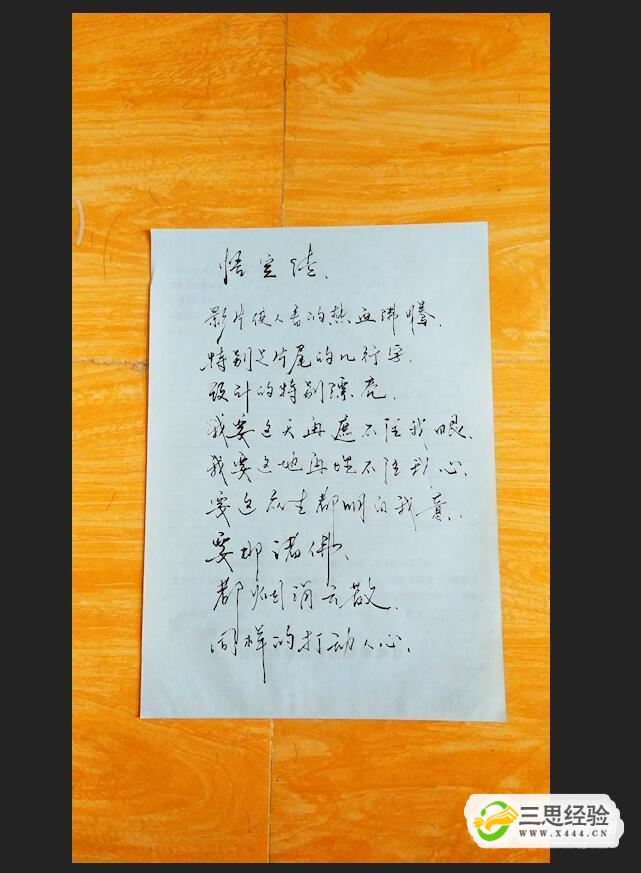 悟空传.
影片使人看的热血沸腾.
特别是片尾的几行字.
设计的特别漂亮.
我要这天再遮不住我眼.
我要这地再埋不住我心.
要这众生都明白我意.
要那诸佛.
都烟消云散.
同样的打动人心.
三思经验
WWW.X444.CN